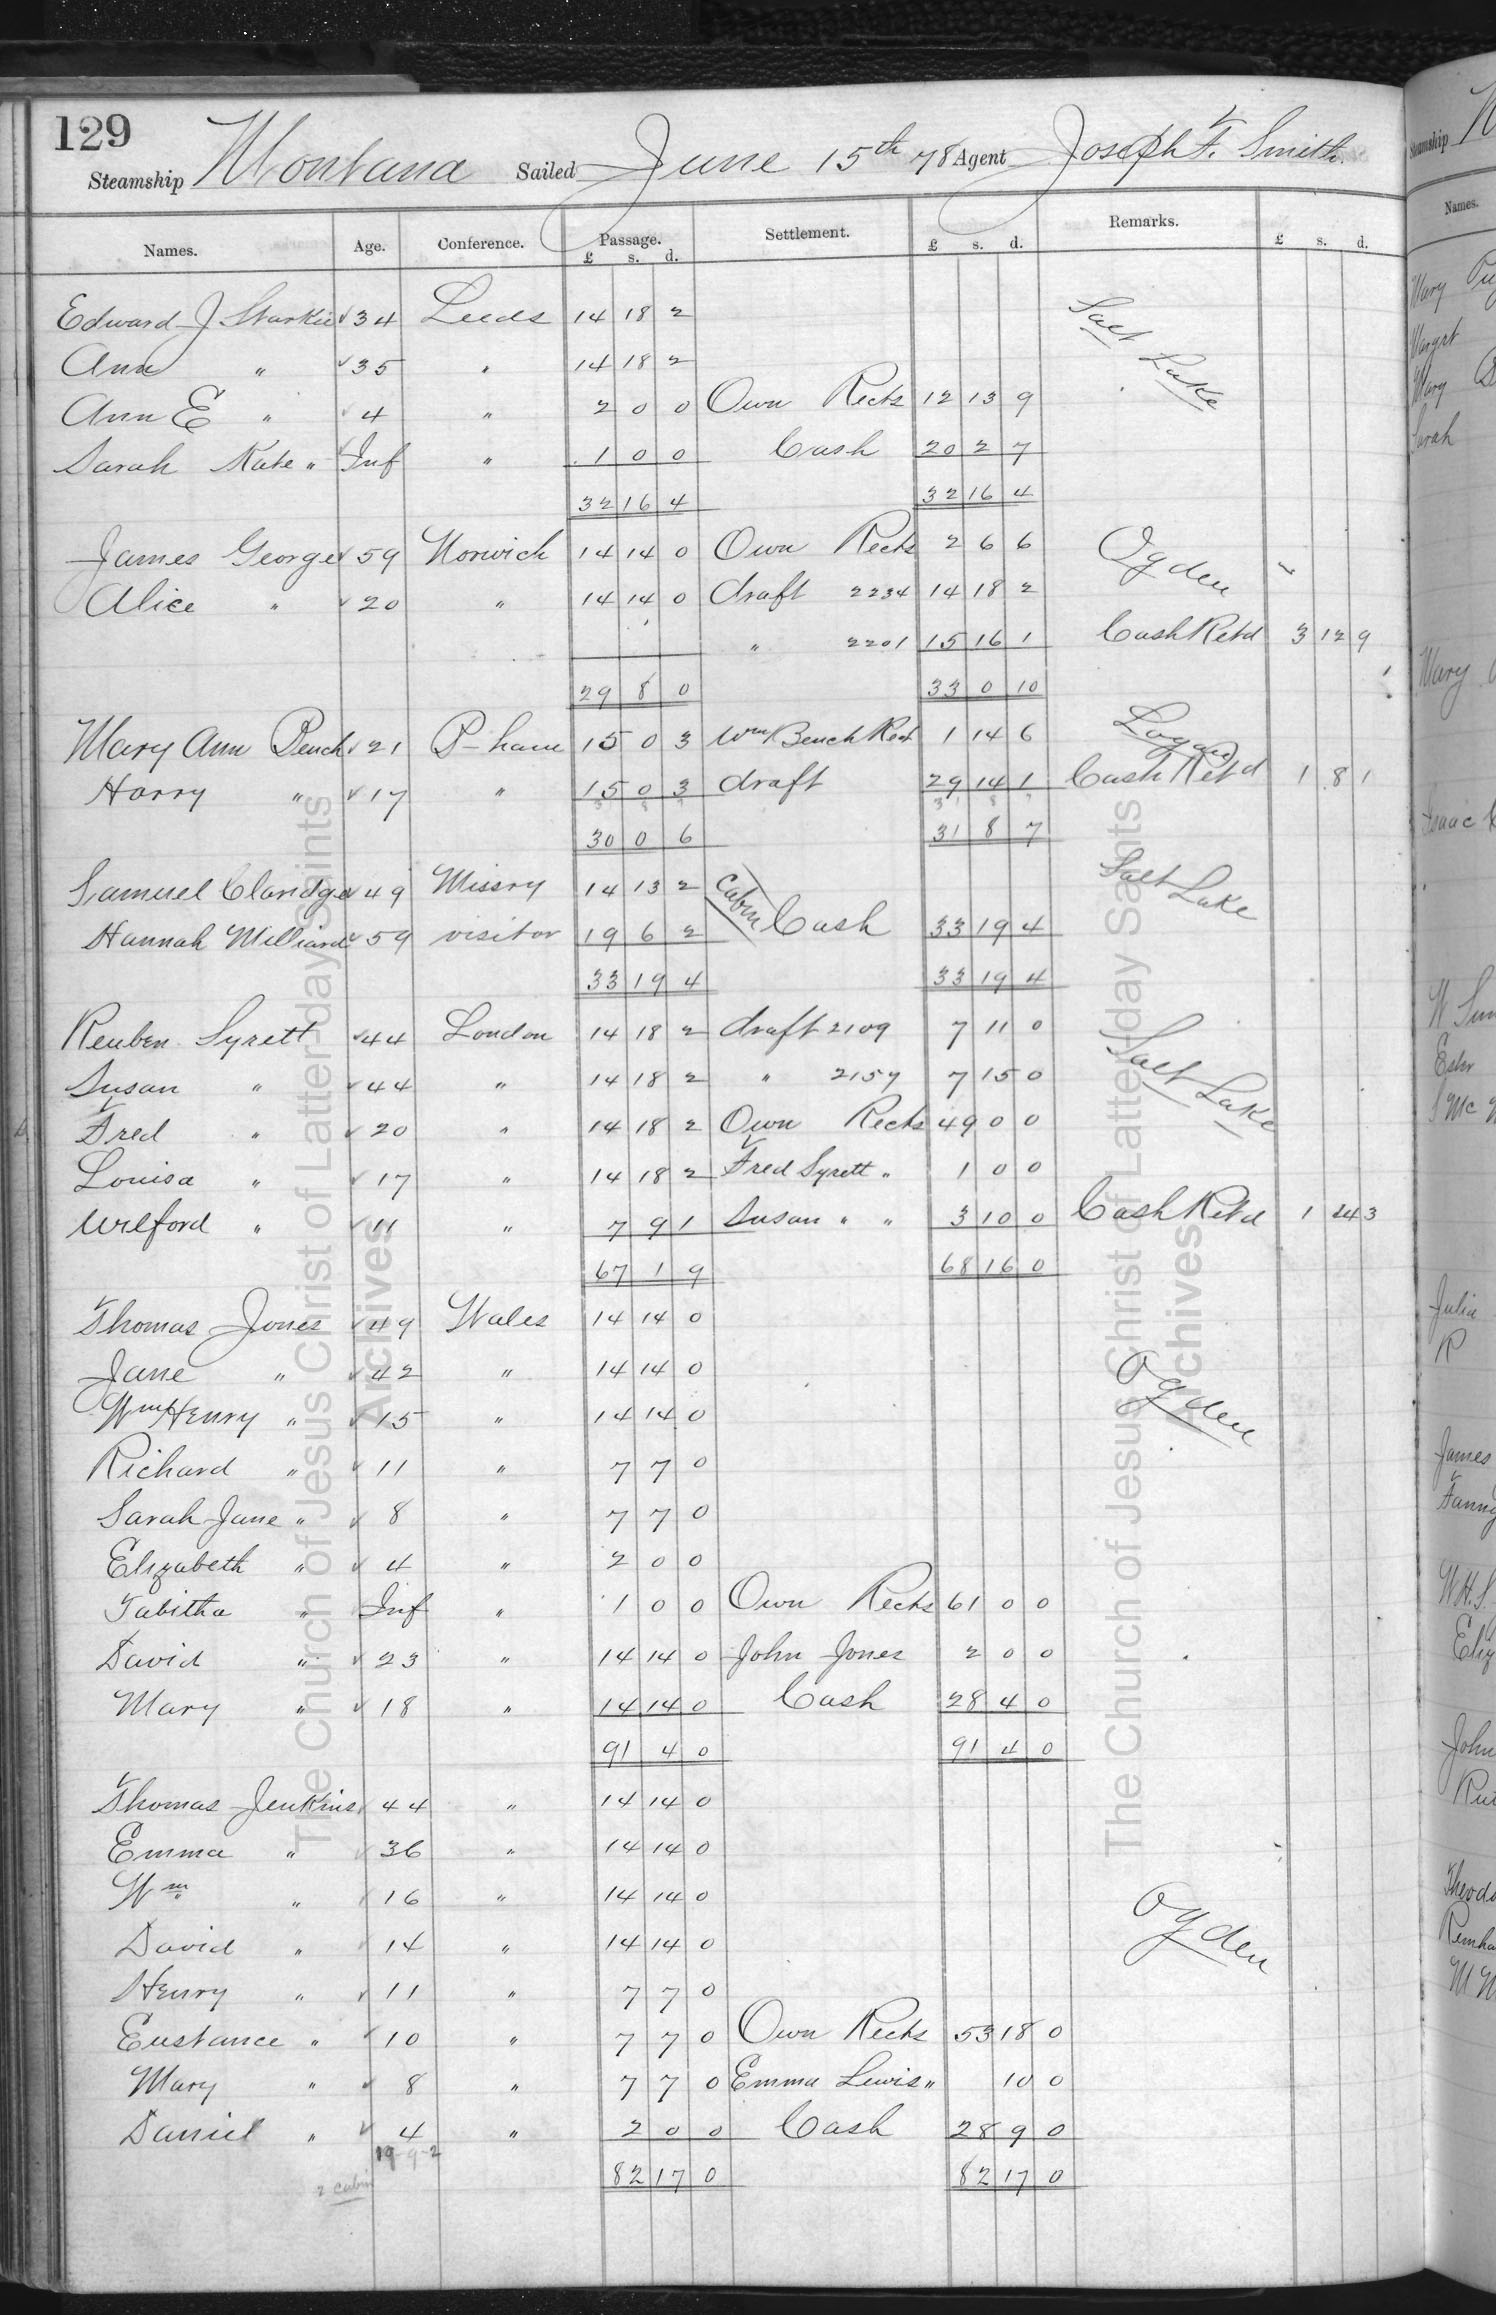 129
Steamship Montana Sailed June 15th 78 Agent Joseph F. Smith
Names. Age. Conference. Passage. Settlement. £ s. d. Remarks. £ s. d.
£ s. d.
Edward J Starkie 34 Leeds 14 18 2 Salt Lake
Ann " 35 " 14 18 2
Ann E " 4 " 2 0 0 Own Rects 12 13 9
Sarah Kate " Inf " 1 0 0 Cash 20 2 7
32 16 4 32 16 4
James George 59 Norwich 14 14 0 Own Rects 2 6 6 Ogden
Alice " 20 " 14 14 0 draft 2234 14 18 2
" 2201 15 16 1 Cash Retd 3 12 9
29 8 0 33 0 10
Mary Ann Bench 21 B-ham 15 0 3 Wm Bench Rect 1 14 6 Logan
Harry " 17 " 15 0 3 draft 29 14 1 Cash Retd 1 8 1
30 0 6 31 8 7
Samuel Claridge 49 Missry 14 13 2 Cabin Salt Lake
Hannah Milliard 59 visitor 19 6 2 Cash 33 19 4
33 19 4 33 19 4
Reuben Syrett 44 London 14 18 2 draft 2109 7 11 0 Salt Lake
Susan " 44 " 14 18 2 " 2157 7 15 0
Fred " 20 " 14 18 2 Own Rects 49 0 0
Louisa " 17 " 14 18 2 Fred Syrett " 1 0 0
Wilford " 11 " 7 9 1 Susan " " 3 10 0 Cash Retd 1 14 3
67 1 9 68 16 0
Thomas Jones 49 Wales 14 14 0
Jane " 42 " 14 14 0 Ogden
Wm Henry " 15 " 14 14 0
Richard " 11 " 7 7 0
Sarah Jane " 8 " 7 7 0
Elizabeth " 4 " 2 0 0
Tabitha " Inf " 1 0 0 Own Rects 61 0 0
David " 23 " 14 14 0 John Jones 2 0 0
Mary " 18 " 14 14 0 Cash 28 4 0
91 4 0 91 4 0
Thomas Jenkins 44 " 14 14 0
Emma " 36 " 14 14 0
Wm " 16 " 14 14 0 Ogden
David " 14 " 14 14 0
Henry " 11 " 7 7 0
Eustance " 10 " 7 7 0 Own Rects 53 18 0
Mary " 8 " 7 7 0 Emma Lewis " 10 0
Daniel " 4 " 2 0 0 Cash 28 9 0
19-9-2
2 cabin 82 17 0 82 17 0
The Church of Jesus Christ of Latter-day Saints
Archives
The Church of Jesus Christ of Latter-day Saints
Archives
Steamship
Names.
Mary
Margrt
Mary
Sarah
Mary
Isaac
Julia
James
Fanny
John